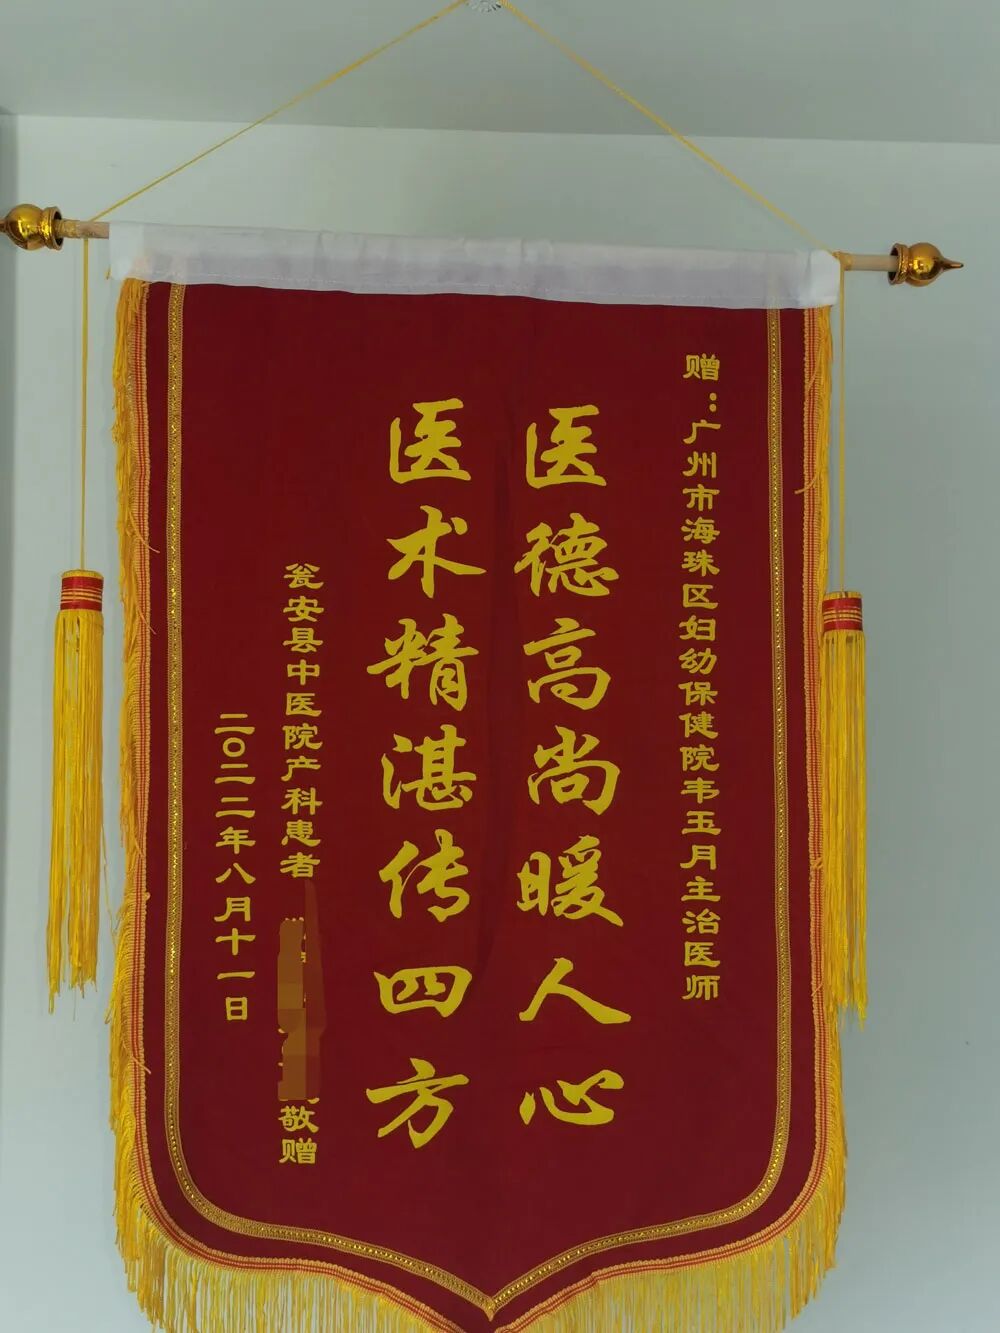 赠：广州市海珠区妇幼保健院韦玉月主治医师
医德高尚暖人心
医术精湛传四方
瓮安县中医院产科患者
敬赠
二〇二二年八月十一日